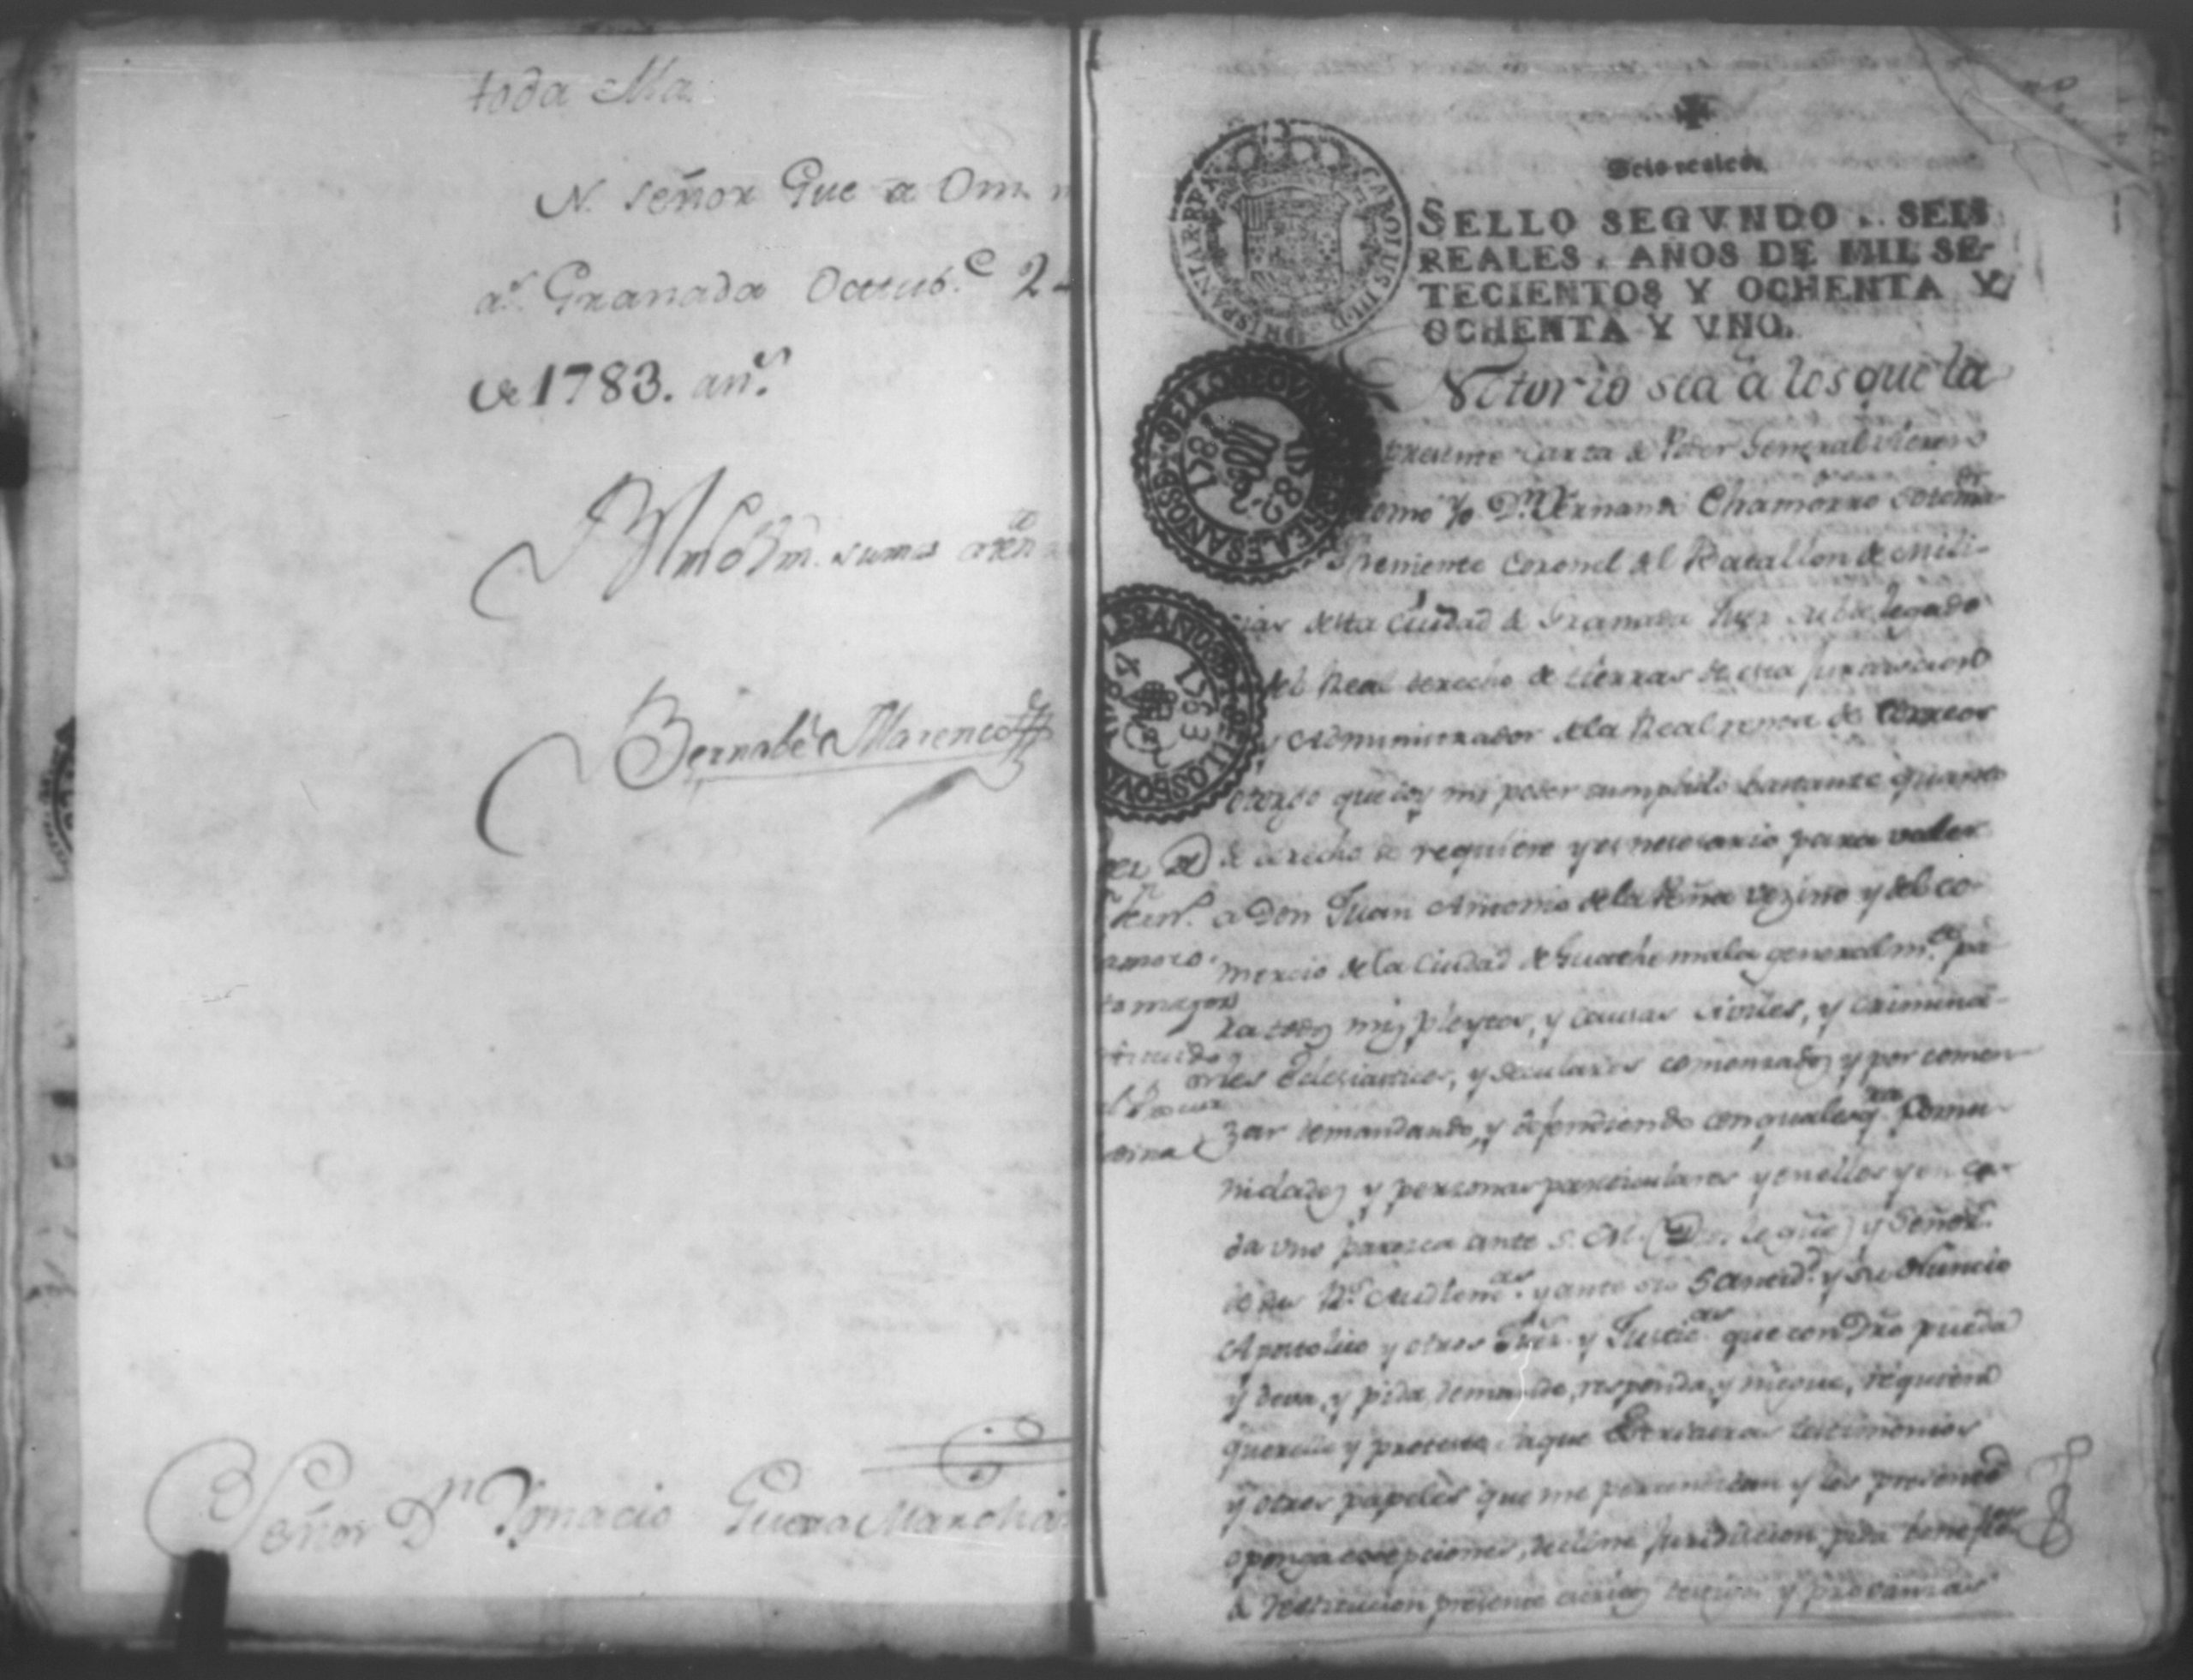 toda Ma
N. señor Gue a Vm. m
a.s Granada Octub.e 2
de 1783. an.s
BlmoVm. su mas aten
Bernabé Marenco
Señor D.n Ygnacio Guerra Marchan
Seis reales.
SELLO SEGVNDO .. SEIS
REALES, AÑOS DE MIL SE-
TECIENTOS Y OCHENTA Y
OCHENTA Y VNO.
CAROLUS III D G HISPANIAR REX
SELLO SEGVNDO SEIS REALES AÑOS
1782-83
SELLO SEGVNDO REALES AÑOS
1783
Notorio sea a los que la
presente carta de Poder General vieren
como Yo D.n Fernando Chamorro Sotoma.or
Theniente Coronel del Batallon de Mili-
cias desta Ciudad de Granada Juez subdelegado
del Real derecho de tierras de esta jurisdicion
y Administrador de la Real renta de Correos
otorgo que doy mi poder cumplido bastante quanto
de derecho se requiere y es necesario para valer
a Don Juan Antonio de la Peña vezino y del co-
mercio de la Ciudad de Guathemala generalm.te pa
ra todos mis pleytos, y causas civiles, y crimina-
les Eclesiasticos, y seculares comenzados y por comen
zar demandando, y defendiendo con qualesq.ra Comu
nidades y personas particulares y en ellos y en ca-
da uno paresca ante S. M. (Dios le gũe) y Señor.s
de sus R.s Audienc.as y ante su Santid.d y su Nuncio
Apostolico y otros Jũes. y Justic.as que con dro pueda
y deva, y pida, demande, responda, y niegue, requiera
querelle y proteste, saque Escrituras testimonios
y otros papeles que me pertenescan y los presente
oponga excepciones, decline jurisdiccion pida beneficios
de restitucion presente escritos testigos y provanzas